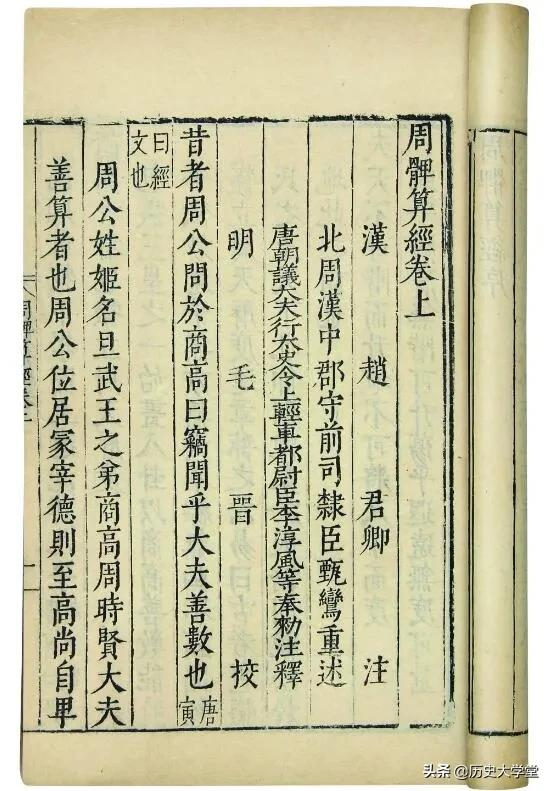 周髀算經卷上
漢 趙 君卿 注
北周漢中郡守前司隸臣甄鸞重述
唐朝議大夫行太史令上輕車都尉臣李淳風等奉勑注釋
明 毛 晉 挍
昔者周公問於商高曰竊聞乎大夫善數也唐寅
曰經
文也
周公姓姬名旦武王之弟商高周時賢大夫
善算者也周公位居冢宰德則至高尚自卑
周髀算經卷上
一
头条 @历史大学堂